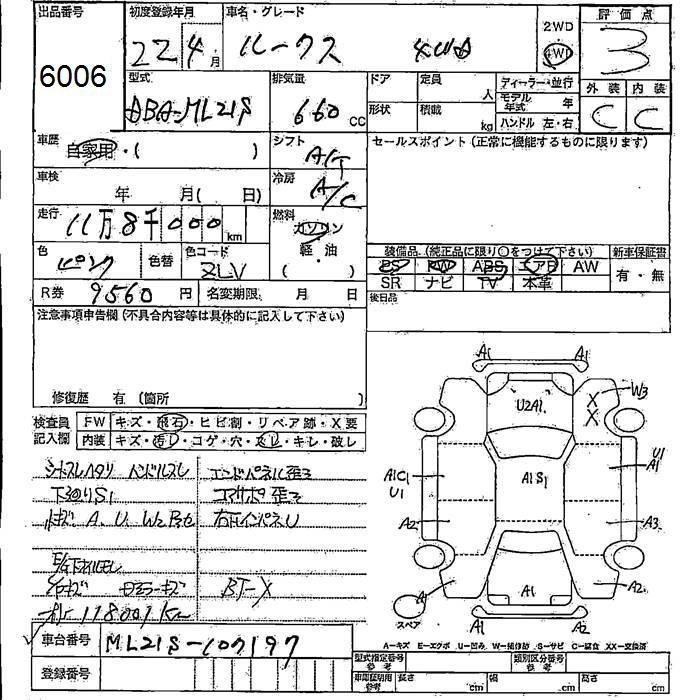 出品番号
6006
初度登録年月
22 4月
車名・グレード
ルークス 4WD
2WD
4WD
評価点
3
外装 内装
C C
型式
DBA-ML21S
排気量
660 CC
ドア
定員 人
形状
積載 kg
ディーラー・並行
モデル年式 年
ハンドル 左・右
車歴
自家用・( )
シフト
A/T
セールスポイント(正常に機能するものに限ります)
車検
年 月( 日)
冷房
A/C
走行
11万8千000km
燃料
ガソリン
軽・油
( )
色
ピンク
色替
色コード
ZLV
装備品(純正品に限り○をつけて下さい)
新車保証書
PS PW ABS エアB AW
SR ナビ TV 本革
有・無
後日品
R券 9560円
名変期限 月 日
注意事項申告欄(不具合内容等は具体的に記入して下さい)
修復歴 有(箇所 )
検査員記入欄
FW キズ・飛石・ヒビ割・リペア跡・X要
内装 キズ・汚レ・コゲ・穴・スレ・キレ・破レ
シートスレヘタリ ハンドルスレ
エンドパネル歪ミ
下廻りS1
コアサポ歪ミ
小キズ A. U. W2
右
BT-X
118001km
A1 A1
W3
X
X
U2A1
U1
A1
A1C1
U1
A1S1
A2
A3
A1
A2
A1
A1
A2
スペア
車台番号 ML21S-107197
A=キズ E=エクボ U=凹み W=補修跡 S=サビ C=腐食 XX=交換済
登録番号
型式指定番号 参考
類別区分番号 参考
車庫証明用 参考
長さ cm
幅 cm
高さ cm